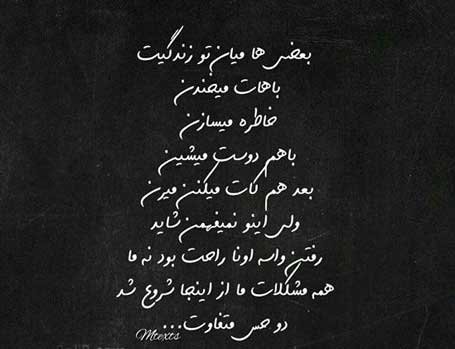 بعضی ها میان تو زندگیت
باهات میخندن
خاطره میسازن
باهم دوست میشین
بعد هم کات میکنن میرن
ولی اینو نمیفهمن شاید
رفتن واسه اونا راحت بود نه ما
همه مشکلات ما از اینجا شروع شد
دو حس متفاوت...
Mtexts